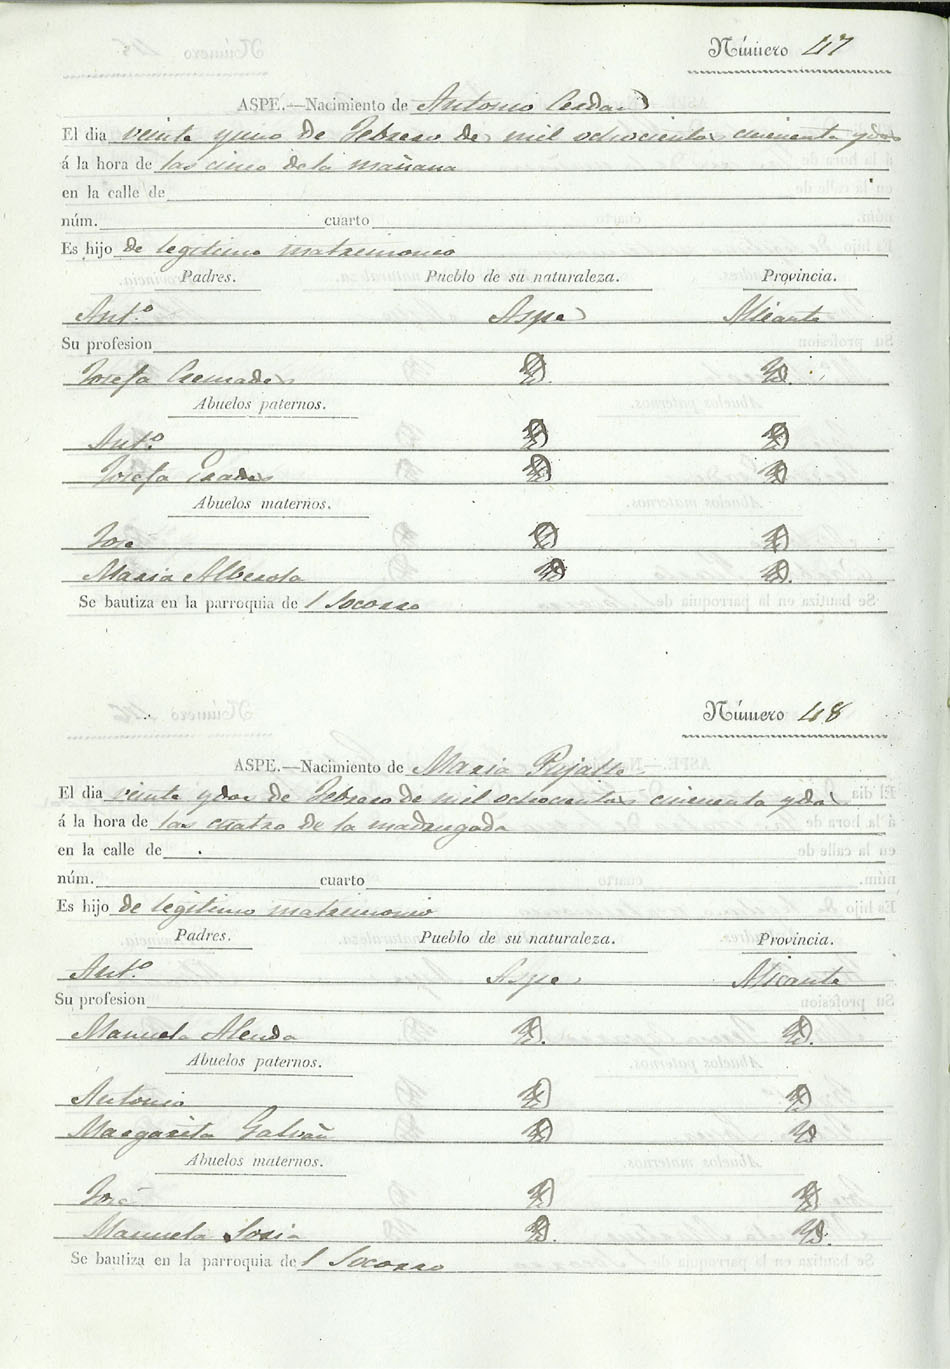 Número 47
ASPE.—Nacimiento de Antonio Cerdan
El dia veinte y uno de Febrero de mil ochocientos cincuenta y dos
á la hora de las cinco de la mañana
en la calle de
núm. cuarto
Es hijo de legitimo matrimonio
Padres. Pueblo de su naturaleza. Provincia.
Ant.º Aspe Alicante
Su profesion
Josefa Cremades Yd. Yd.
Abuelos paternos.
Ant.º Yd. Yd.
Josefa Yd. Yd.
Abuelos maternos.
Jose Yd. Yd.
Maria Alberola Yd. Yd.
Se bautiza en la parroquia del Socorro
Número 48
ASPE.—Nacimiento de Maria
El dia veinte y dos de Febrero de mil ochocientos cincuenta y dos
á la hora de las cuatro de la madrugada
en la calle de
núm. cuarto
Es hijo de legitimo matrimonio
Padres. Pueblo de su naturaleza. Provincia.
Ant.º Aspe Alicante
Su profesion
Manuela Alenda Yd. Yd.
Abuelos paternos.
Antonio Yd. Yd.
Margarita Galvañ Yd. Yd.
Abuelos maternos.
José Yd. Yd.
Manuela Yd. Yd.
Se bautiza en la parroquia del Socorro